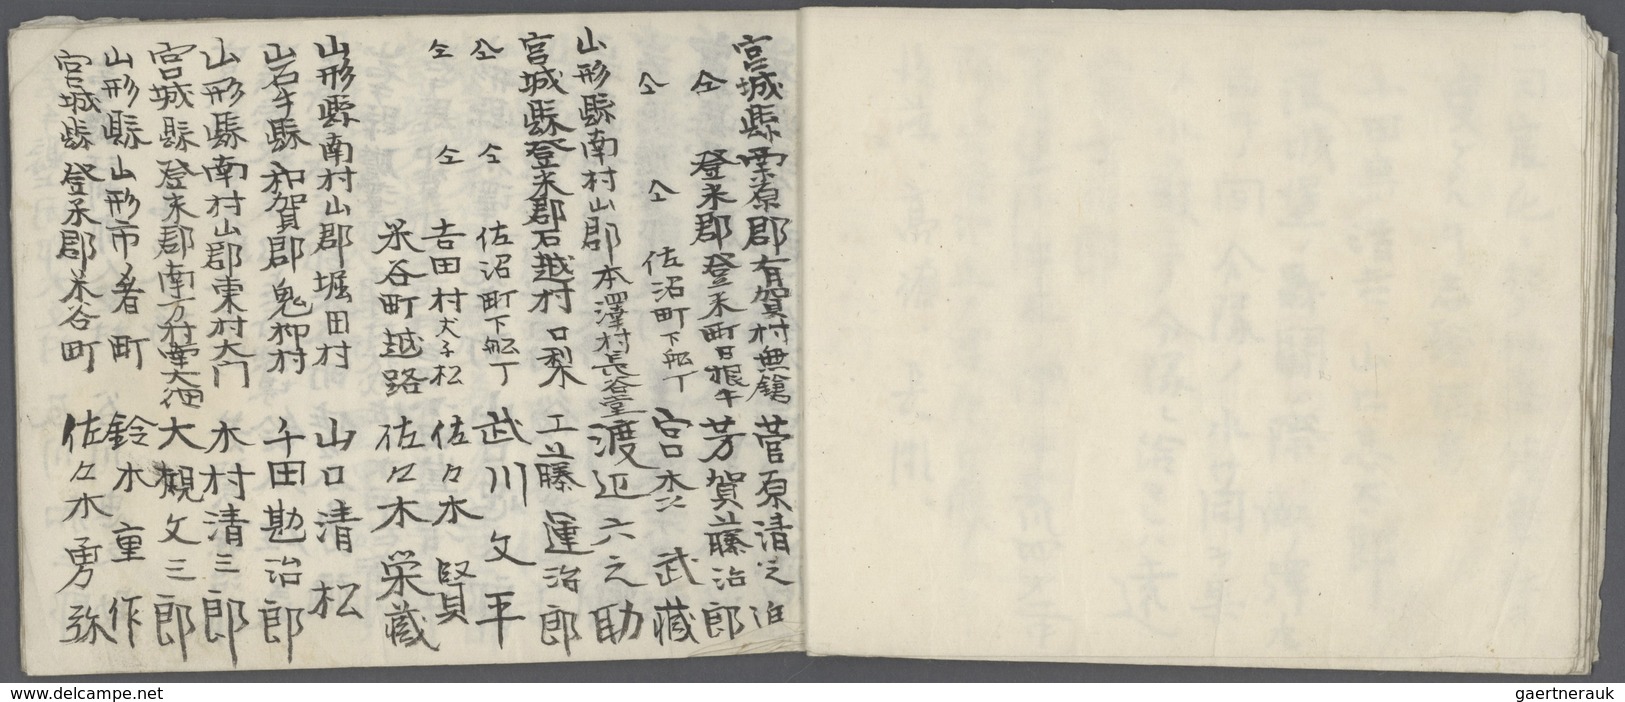 宮城縣栗原郡有賀村無鎗 菅原清之治
仝 登米郡登米町日根牛 芳賀藤治郎
仝 仝 佐沼町下舩丁 宮木 武藏
山形縣南村山郡本澤村長谷堂 渡辺六之助
宮城縣登米郡石越村口梨 工藤運治郎
仝 仝 佐沼町下舩丁 武川文平
仝 仝 吉田村犬子松 佐々木賢
米谷町越路 佐々木栄藏
山形縣南村山郡堀田村 山口清松
岩手縣和賀郡鬼柳村 千田勘治郎
山形縣南村山郡東村大門 木村清三郎
宮城縣登米郡南方村 大槻文三郎
山形縣山形市 町 鈴木重作
宮城縣登米郡米谷町 佐々木勇弥
www.delcampe.net
gaertnerauk